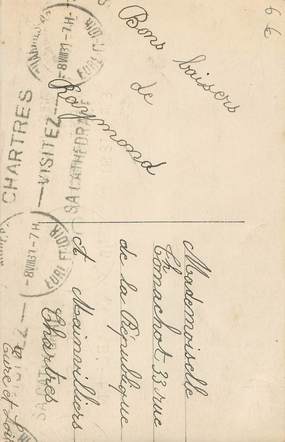 6 €
Bons baisers
de
Raymond
CHARTRES
VISITEZ
SA CATHEDRALE
-8 VIII 31 - 7 H.
EURE ET LOIR
-8 VIII 31 - 7 H.
EURE ET LOIR
Mademoiselle
33 rue
de la République
A Mainvilliers
Chartres
Eure et Loir